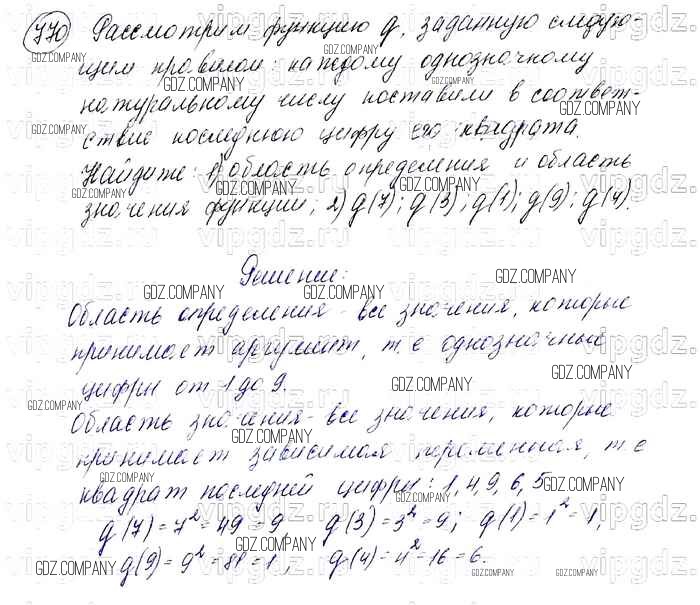 770 Рассмотрим функцию g, заданную следую-
щим правилом: каждому однозначному
натуральному числу поставили в соответ-
ствие последнюю цифру его квадрата.
Найдите: 1) область определения и область
значения функции; 2) g(7); g(3); g(1); g(9); g(4).
Решение:
Область определения - все значения, которые
принимает аргумент, т.е однозначные
цифры от 1 до 9.
Область значения - все значения, которые
принимает зависимая переменная, т.е
квадрат последней цифры: 1, 4, 9, 6, 5
g(7) = 7² = 49 = 9, g(3) = 3² = 9; g(1) = 1² = 1,
g(9) = 9² = 81 = 1, g(4) = 4² = 16 = 6.